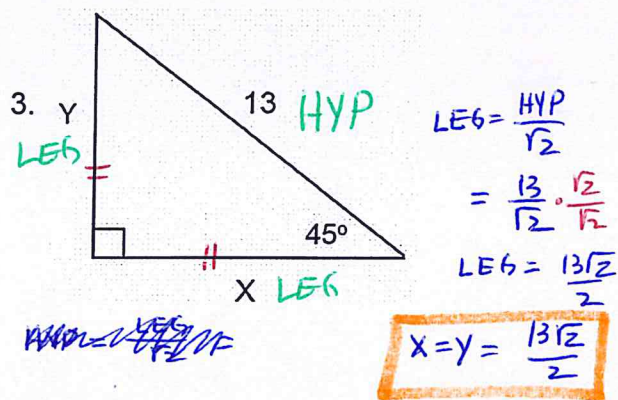 3.
Y
13 HYP
LEG
45º
X LEG
LEG = HYP/√2
= 13/√2 · √2/√2
LEG = 13√2/2
X = Y = 13√2/2